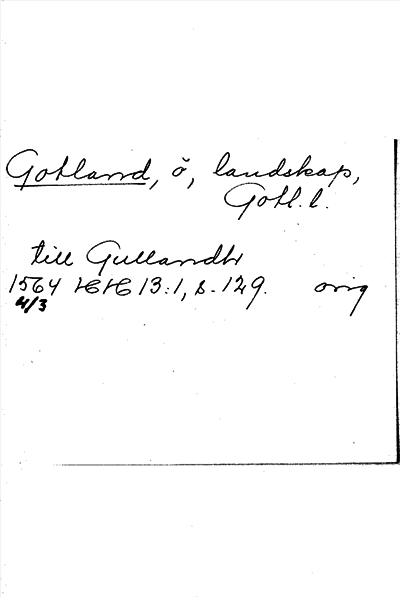 Gotland, ö, landskap,
Gotl. l.
till Gullandh
1564 HH 13:1, s. 129. orig
4/3